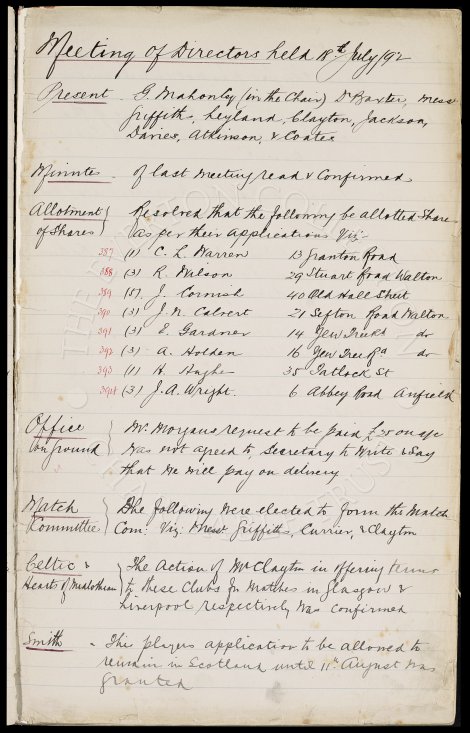 Meeting of Directors held 18th July/92
Present G. Mahon (in the Chair) Dr Baxter, Mess
Griffiths, Leyland, Clayton, Jackson,
Davies, Atkinson, & Coates
Minutes of last meeting read & Confirmed
Allotment Resolved that the following be allotted Shares
of Shares as per their applications Viz:-
387 (1) C. L. Warren 13 Granton Road
388 (3) R. Wilson 29 Stuart Road Walton
389 (5) J. Cornish 40 Old Hall Street
390 (3) J. N. Calvert 21 Sefton Road Walton
391 (3) E. Gardner 14 Yew Tree Rd do
392 (3) A. Holden 16 Yew Tree Rd do
393 (1) H. Hughes 35 Tatlock St
394 (3) J. A. Wright 6 Abbey Road Anfield
Office Mr Morgans request to be paid £25 on a/c
on Ground was not agreed to, Secretary to Write & Say
that we will pay on delivery
Match The following were elected to form the Match
Committee Com: Viz: Messrs Griffiths, Currier, & Clayton
Celtic & The Action of Mr Clayton in offering terms
Heart of Midlothian to these Clubs for Matches in Glasgow &
Liverpool respectively was confirmed
Smith - This players application to be allowed to
remain in Scotland until 11th August was
granted